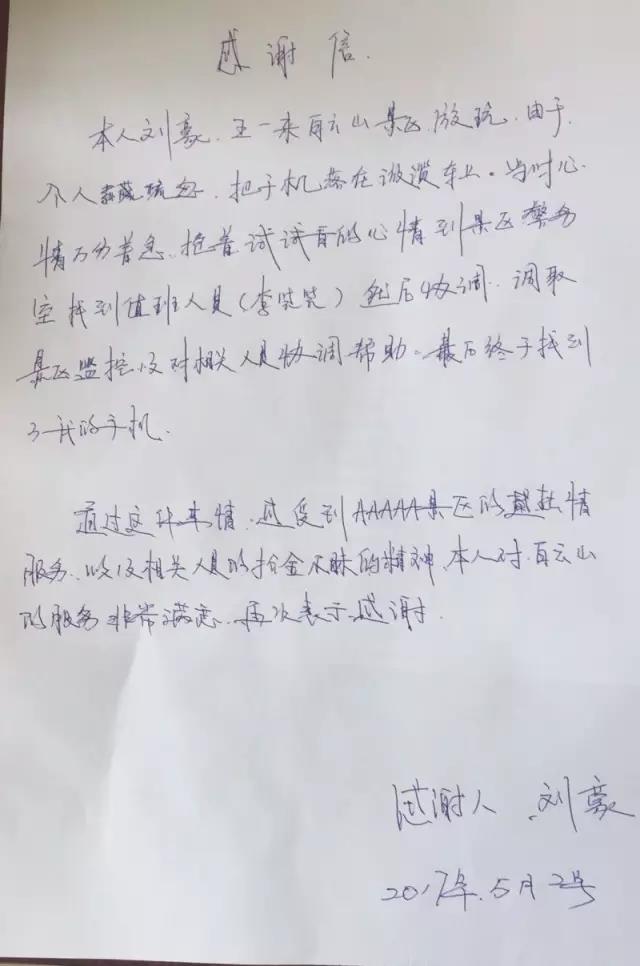 感谢信.
本人刘豪.五一来白云山景区.游玩.由于.
个人疏忽.把手机落在游览车上.当时心
情万分着急.抱着试试看的心情到景区警务
室找到值班人员(李笑笑)然后协调.调取
景区监控以及对相关人员协调帮助.最后终于找到
了我的手机.
通过这件事情.感受到AAAAA景区的热情
服务.以及相关人员的拾金不昧的精神.本人对.白云山
的服务非常满意.再次表示感谢.
感谢人.刘豪
2017年.5月2号